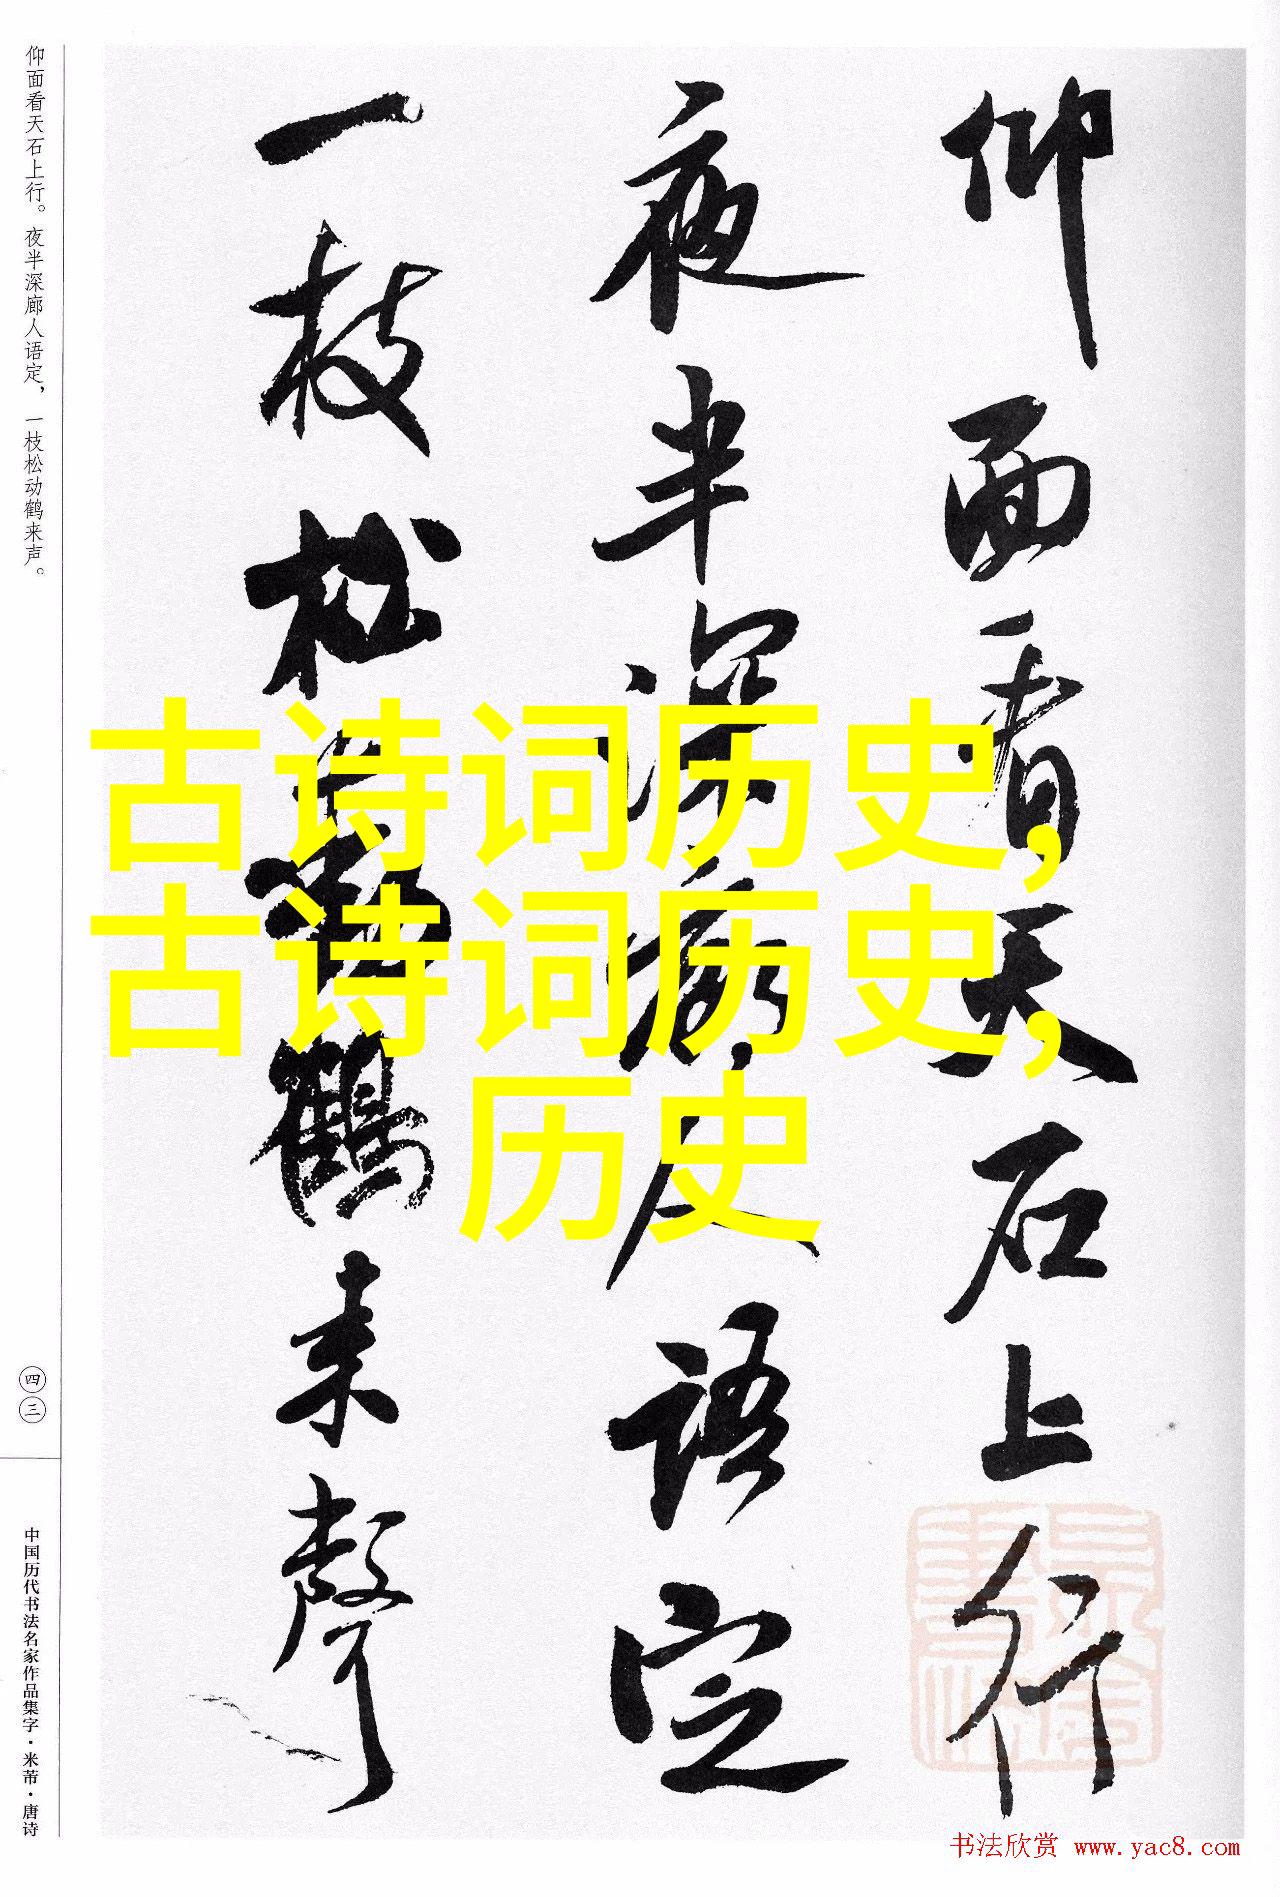 仰面看天石上行
夜半深廊人语定
一枝松动鹤来聲
仰面看天石上行。夜半深廊人语定，一枝松动鹤来声。
四三
中国历代书法名家作品集字·米芾·唐诗
古诗词历史,
古诗词历史,
历史
书法欣赏 www.yac8.com